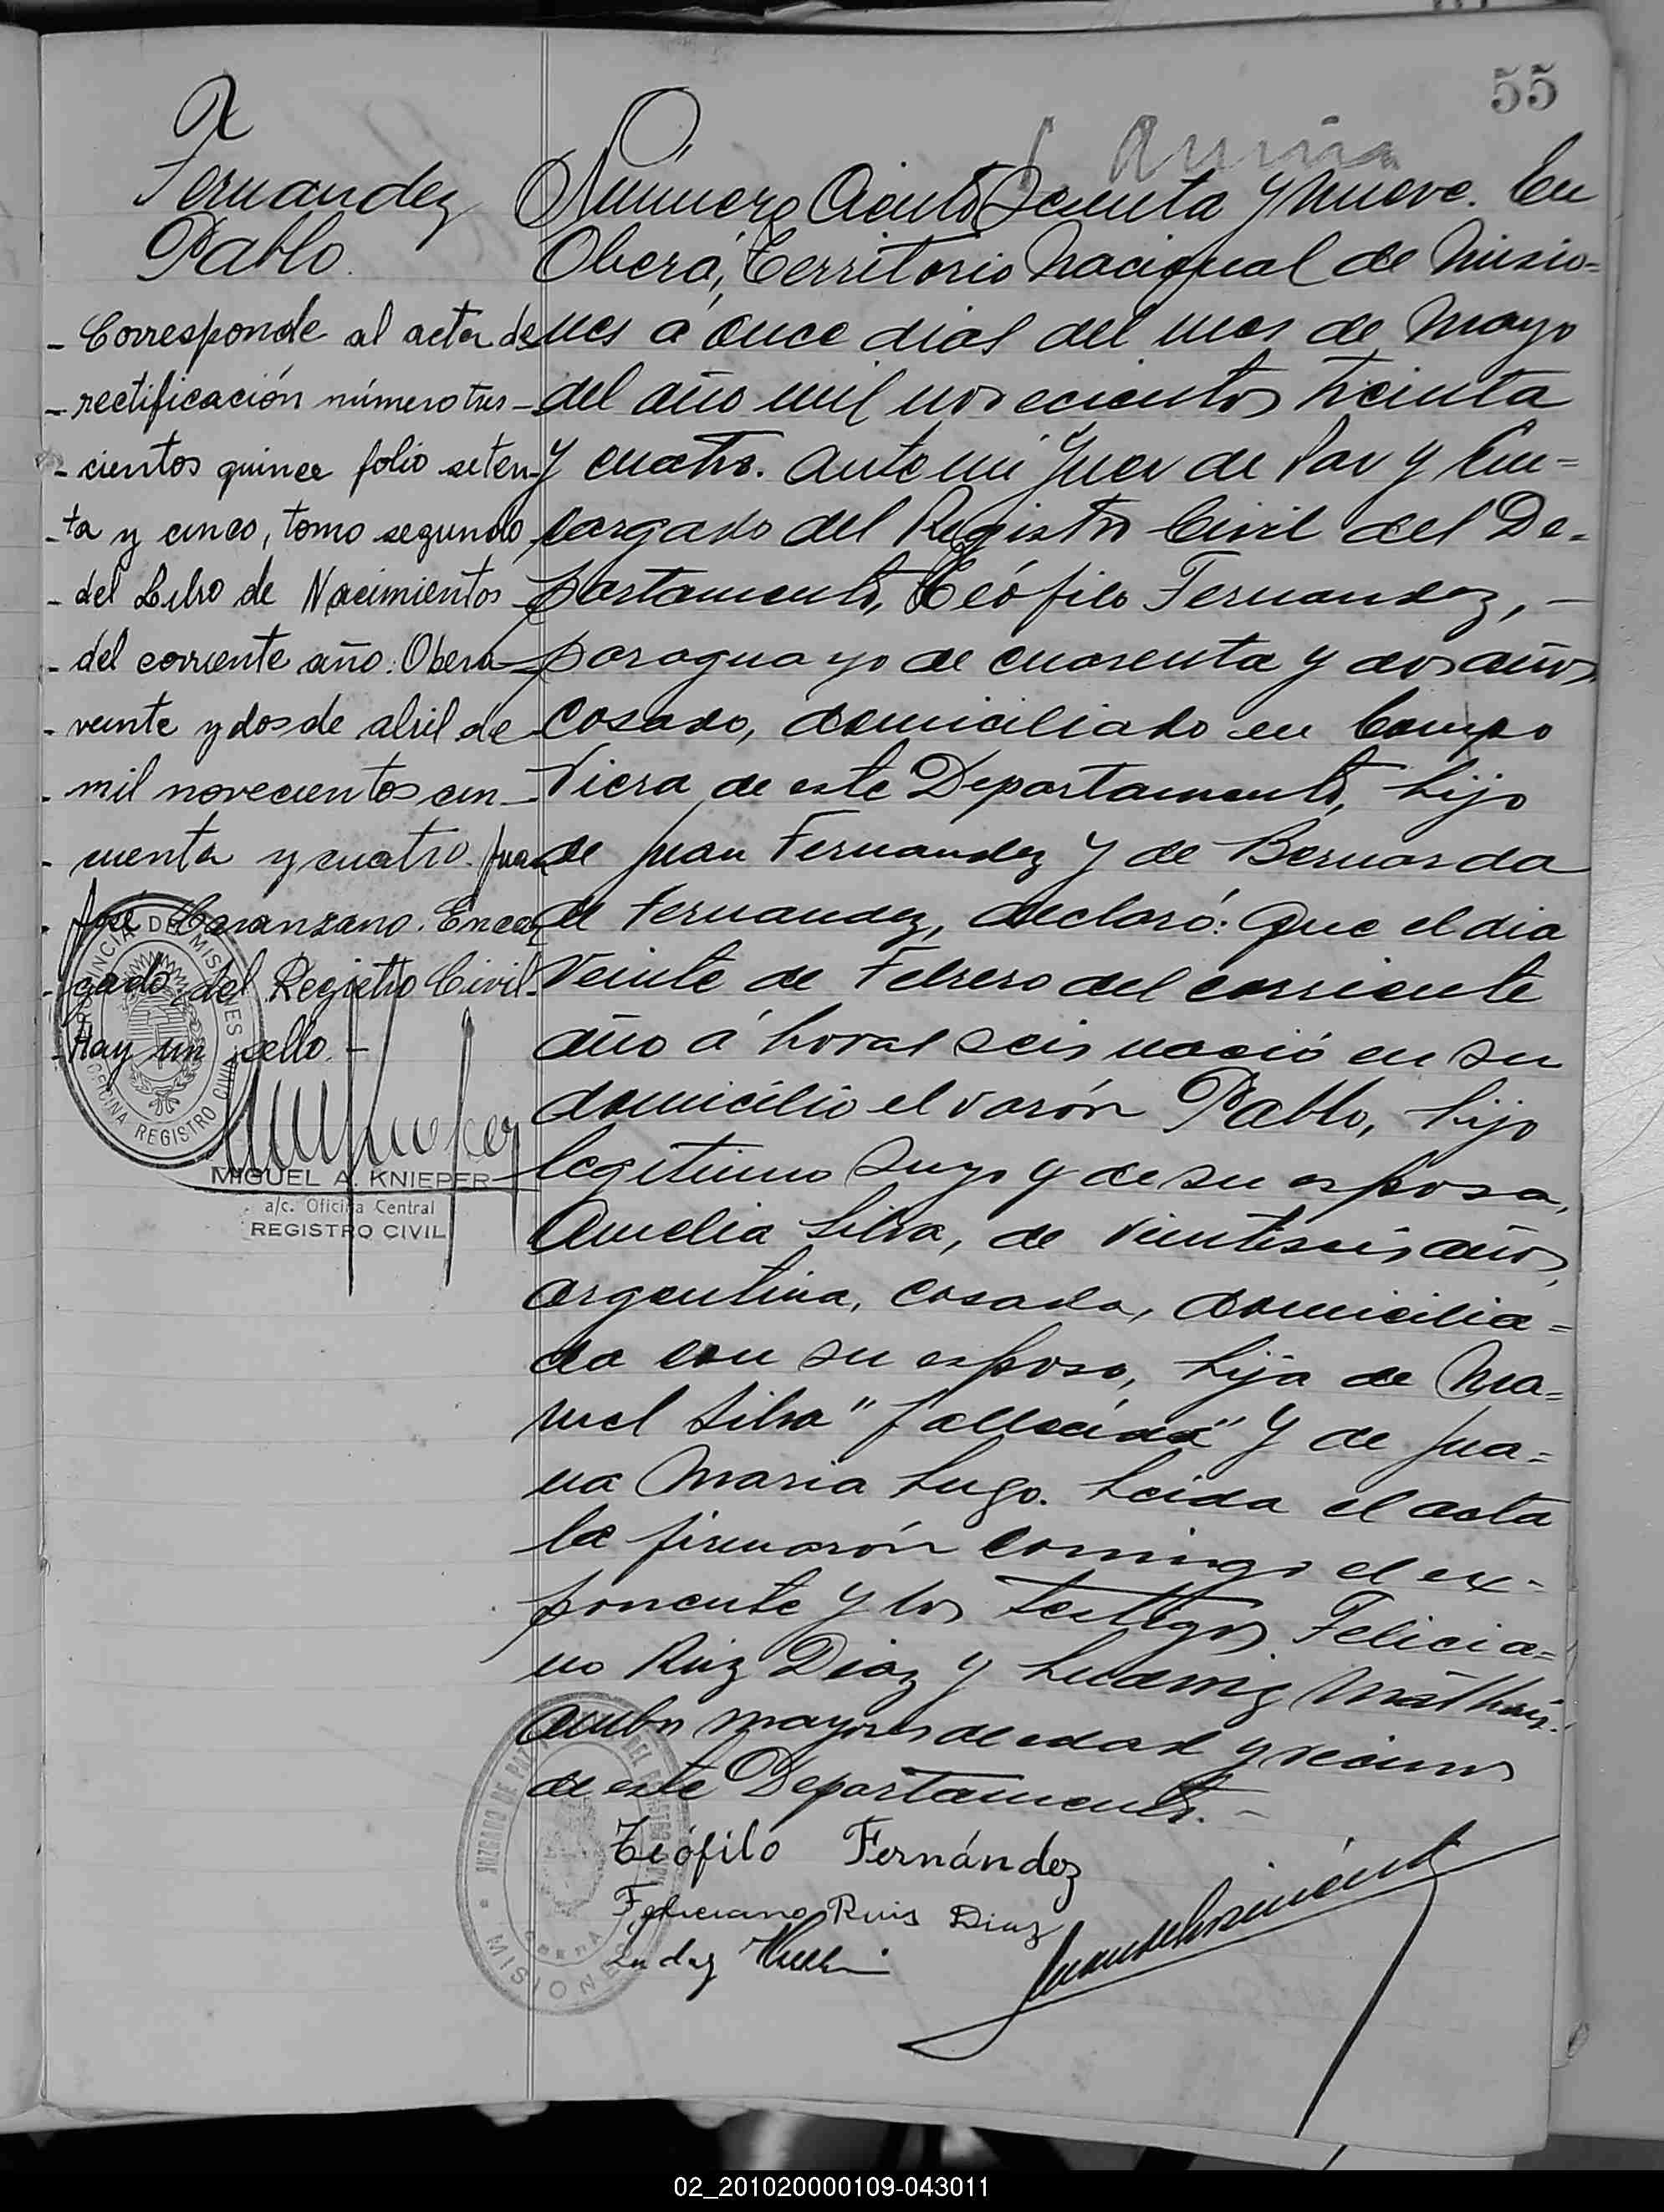 55
Fernandez
Pablo.
- Corresponde al acta de
- rectificación número tres-
- cientos quince folio seten-
- ta y cinco, tomo segundo
- del Libro de Nacimientos
- del corriente año. Obera
- veinte y dos de abril de
- mil novecientos cin-
- cuenta y cuatro. Juan
- José Encar
- gado del Registro Civil.
- Hay un sello. -
PROVINCIA DE MISIONES
OFICINA REGISTRO CIVIL
MIGUEL A. KNIEPER
a/c. Oficina Central
REGISTRO CIVIL
Número Ciento y nueve. En
Oberá, Territorio Nacional de Misio=
nes a once dias del mes de Mayo
del año mil novecientos treinta
y cuatro. Ante mi Juez de Paz y En=
cargado del Registro Civil del De=
partamento, Teófilo Fernandez, -
paraguayo de cuarenta y dos años,
casado, domiciliado en Campo
Viera de este Departamento, hijo
de Juan Fernandez y de Bernarda
de Fernandez, declaró: Que el dia
veinte de Febrero del corriente
año á horas seis nació en su
domicilio el varón Pablo, hijo
legitimo suyo y de su esposa,
Amelia Silva, de veintiseis años,
argentina, casada, domicilia=
da con su esposo, hija de Ma=
nuel Silva "fallecido" y de Jua=
na Maria Lugo. Leida el acta
la firmarón conmigo el ex-
ponente y los testigos Felicia=
no Ruiz Diaz y Ludwig
ambos mayores de edad y vecinos
de este Departamento. -
JUZGADO DE PAZ DEL REGISTRO CIVIL
OBERA
MISIONES
Teófilo Fernández
Feliciano Ruis Diaz
02_201020000109-043011